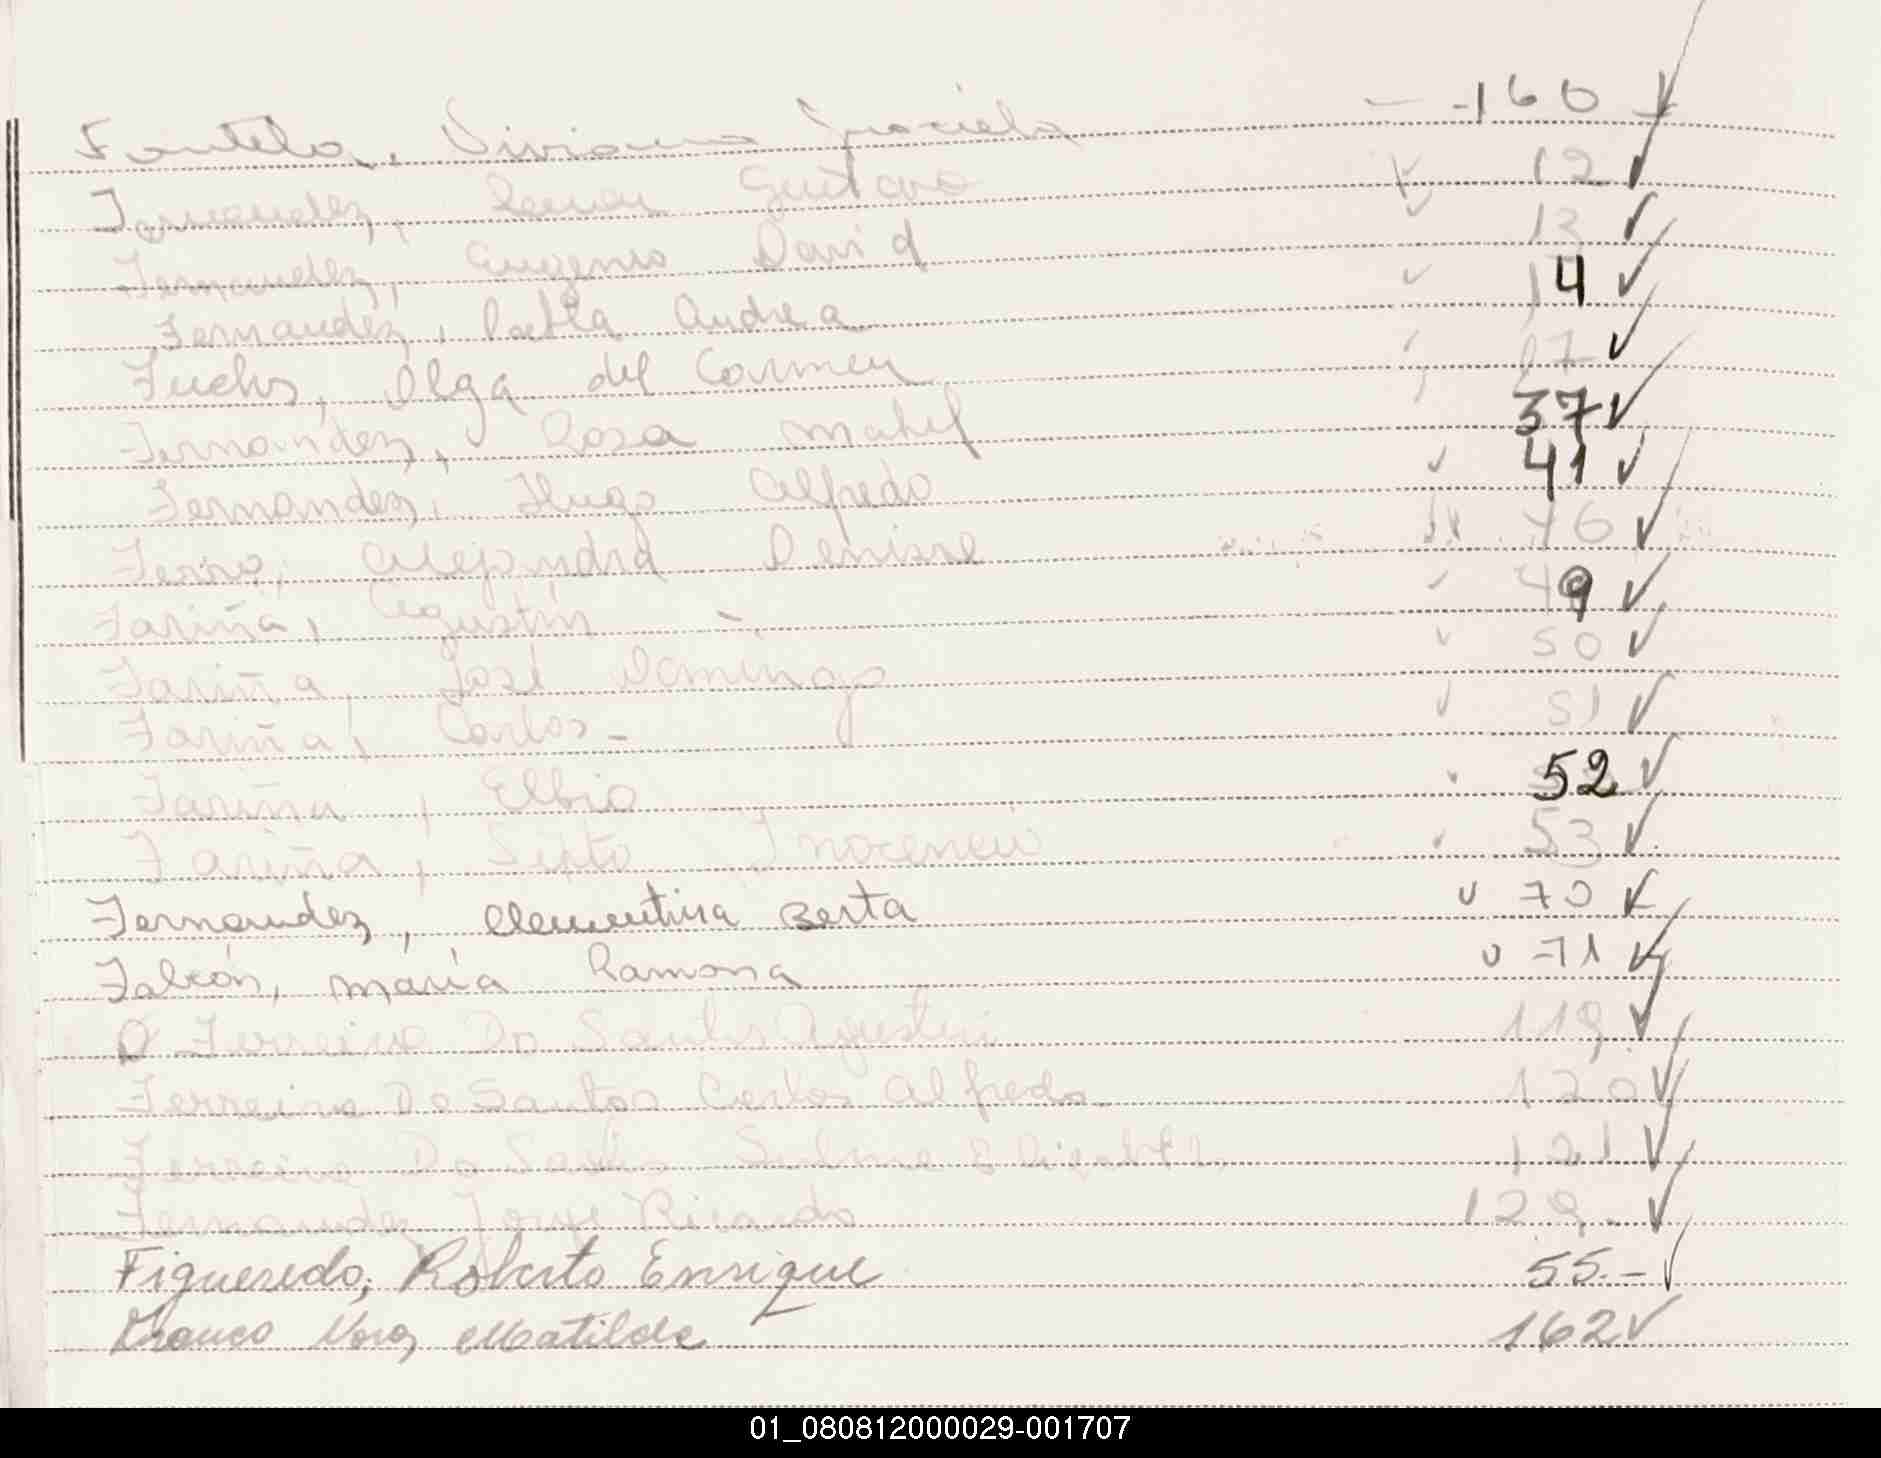 Fontela, Viviana Graciela - 160
Fernandez, Ramon Gustavo 12
Fernandez, Eugenio David 13
Fernandez, Andrea 14
Fuchs, Olga del Carmen 17
Fernandez, Rosa Mabel 37
Fernandez, Hugo Alfredo 41
Ferro, Alejandra Denisse 46
Fariña, Agustín -. 49
Fariña, José Domingo 50
Fariña, Carlos - 51
Fariña, Elbio 52
Fariña, Sixto Inocencio 53
Fernandez, Clementina Berta 70
Falcón, María Ramona 71
Ferreira Do Santos Agustin 119
Ferreira Do Santos Carlos Alfredo. 120
Ferreira Do Santos 121
Fernandez Jorge Ricardo 129.
Figueredo, Roberto Enrique 55.-
Franco Nora Matilde 162
01_080812000029-001707